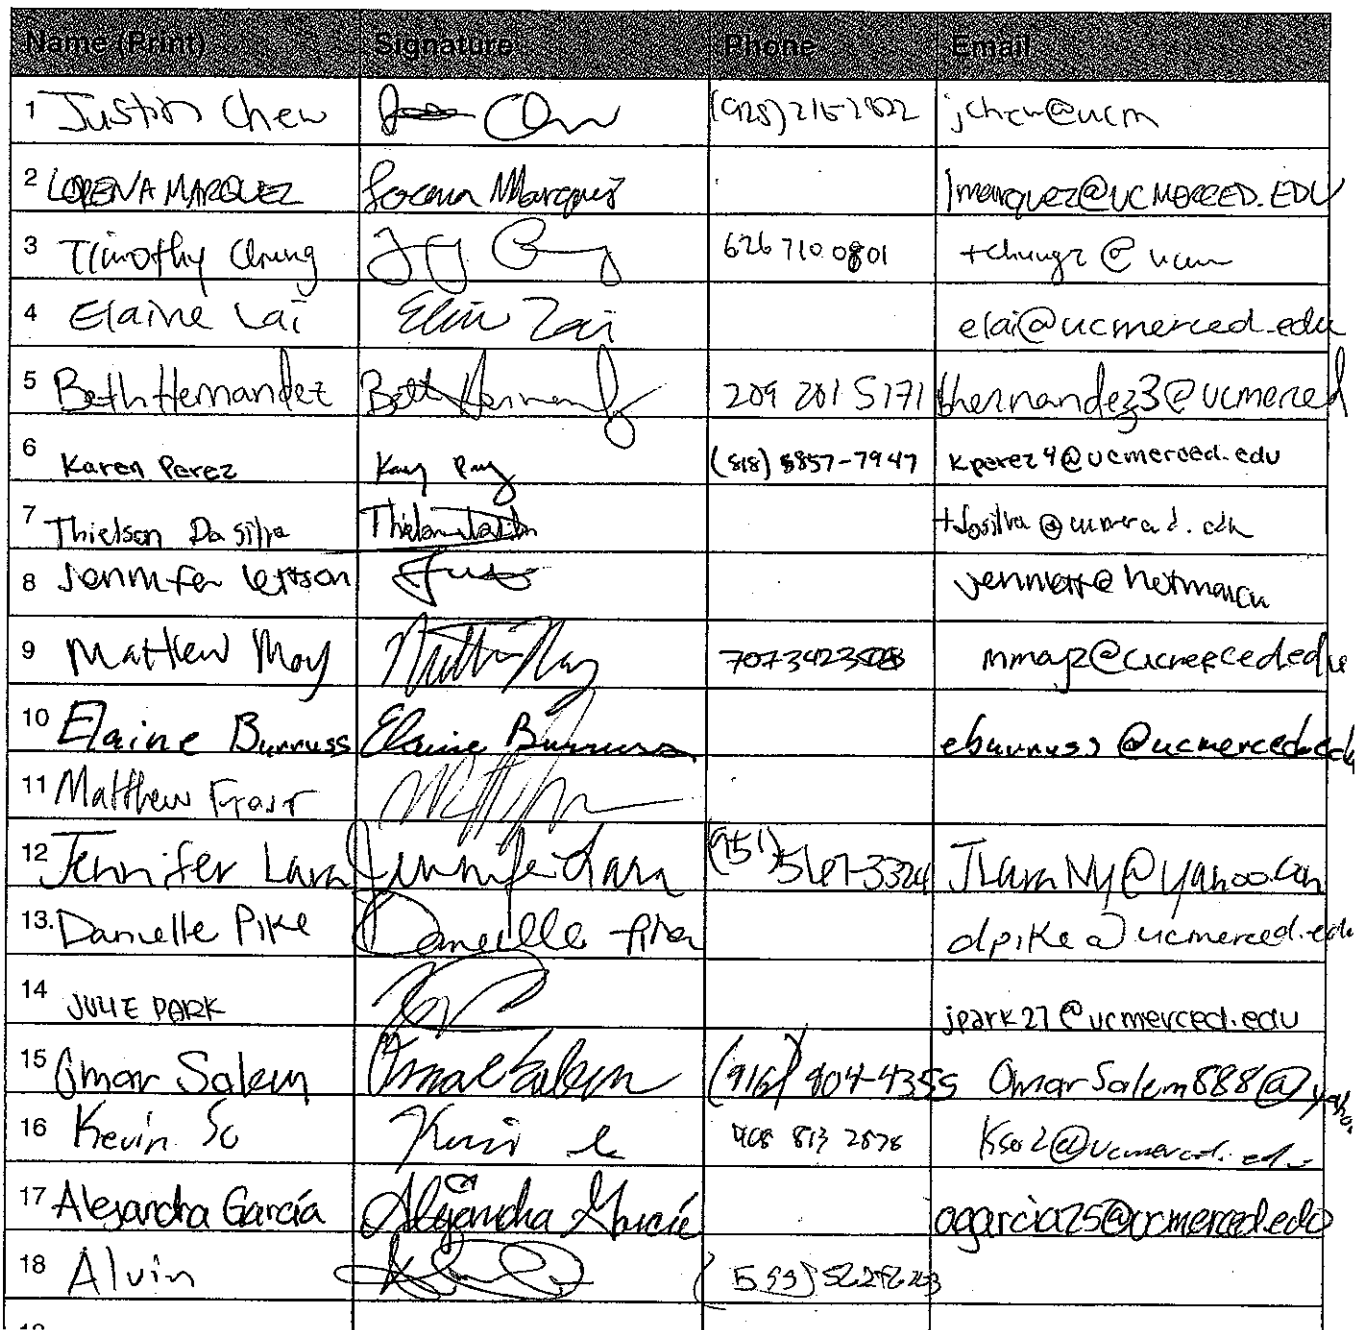 Name (Print) Signature Phone Email
1 Justin Chew (925) 216-2822 jchew@ucm
2 LORENA MARQUEZ Lorena Marquez lmarquez@UCMERCED.EDU
3 Timothy Chung 626 710 0801 tchung2@ucm
4 Elaine Lai elai@ucmerced.edu
5 Beth Hernandez Beth Hernandez 209 201 5171 bhernandez3@ucmerced
6 Karen Perez (818) 857-7947 kperez4@ucmerced.edu
7 Thielson Da Silva
8 Jennifer
9 Matthew May 707342 mmay2@ucmerced.edu
10 Elaine Burruss Elaine Burruss eburruss@ucmerced.edu
11 Matthew
12 Jennifer Lara Jennifer Lara (951) 567-3324 JLaraNy@yahoo.com
13. Danielle Pike Danielle Pike dpike@ucmerced.edu
14 JULIE PARK jpark27@ucmerced.edu
15 Omar Salem Omar Salem (916) 904-4355 OmarSalem888@yahoo.
16 Kevin So 408 813 2878 kso2@ucmerced.edu
17 Alejandra García Alejandra García agarcia25@ucmerced.edu
18 Alvin